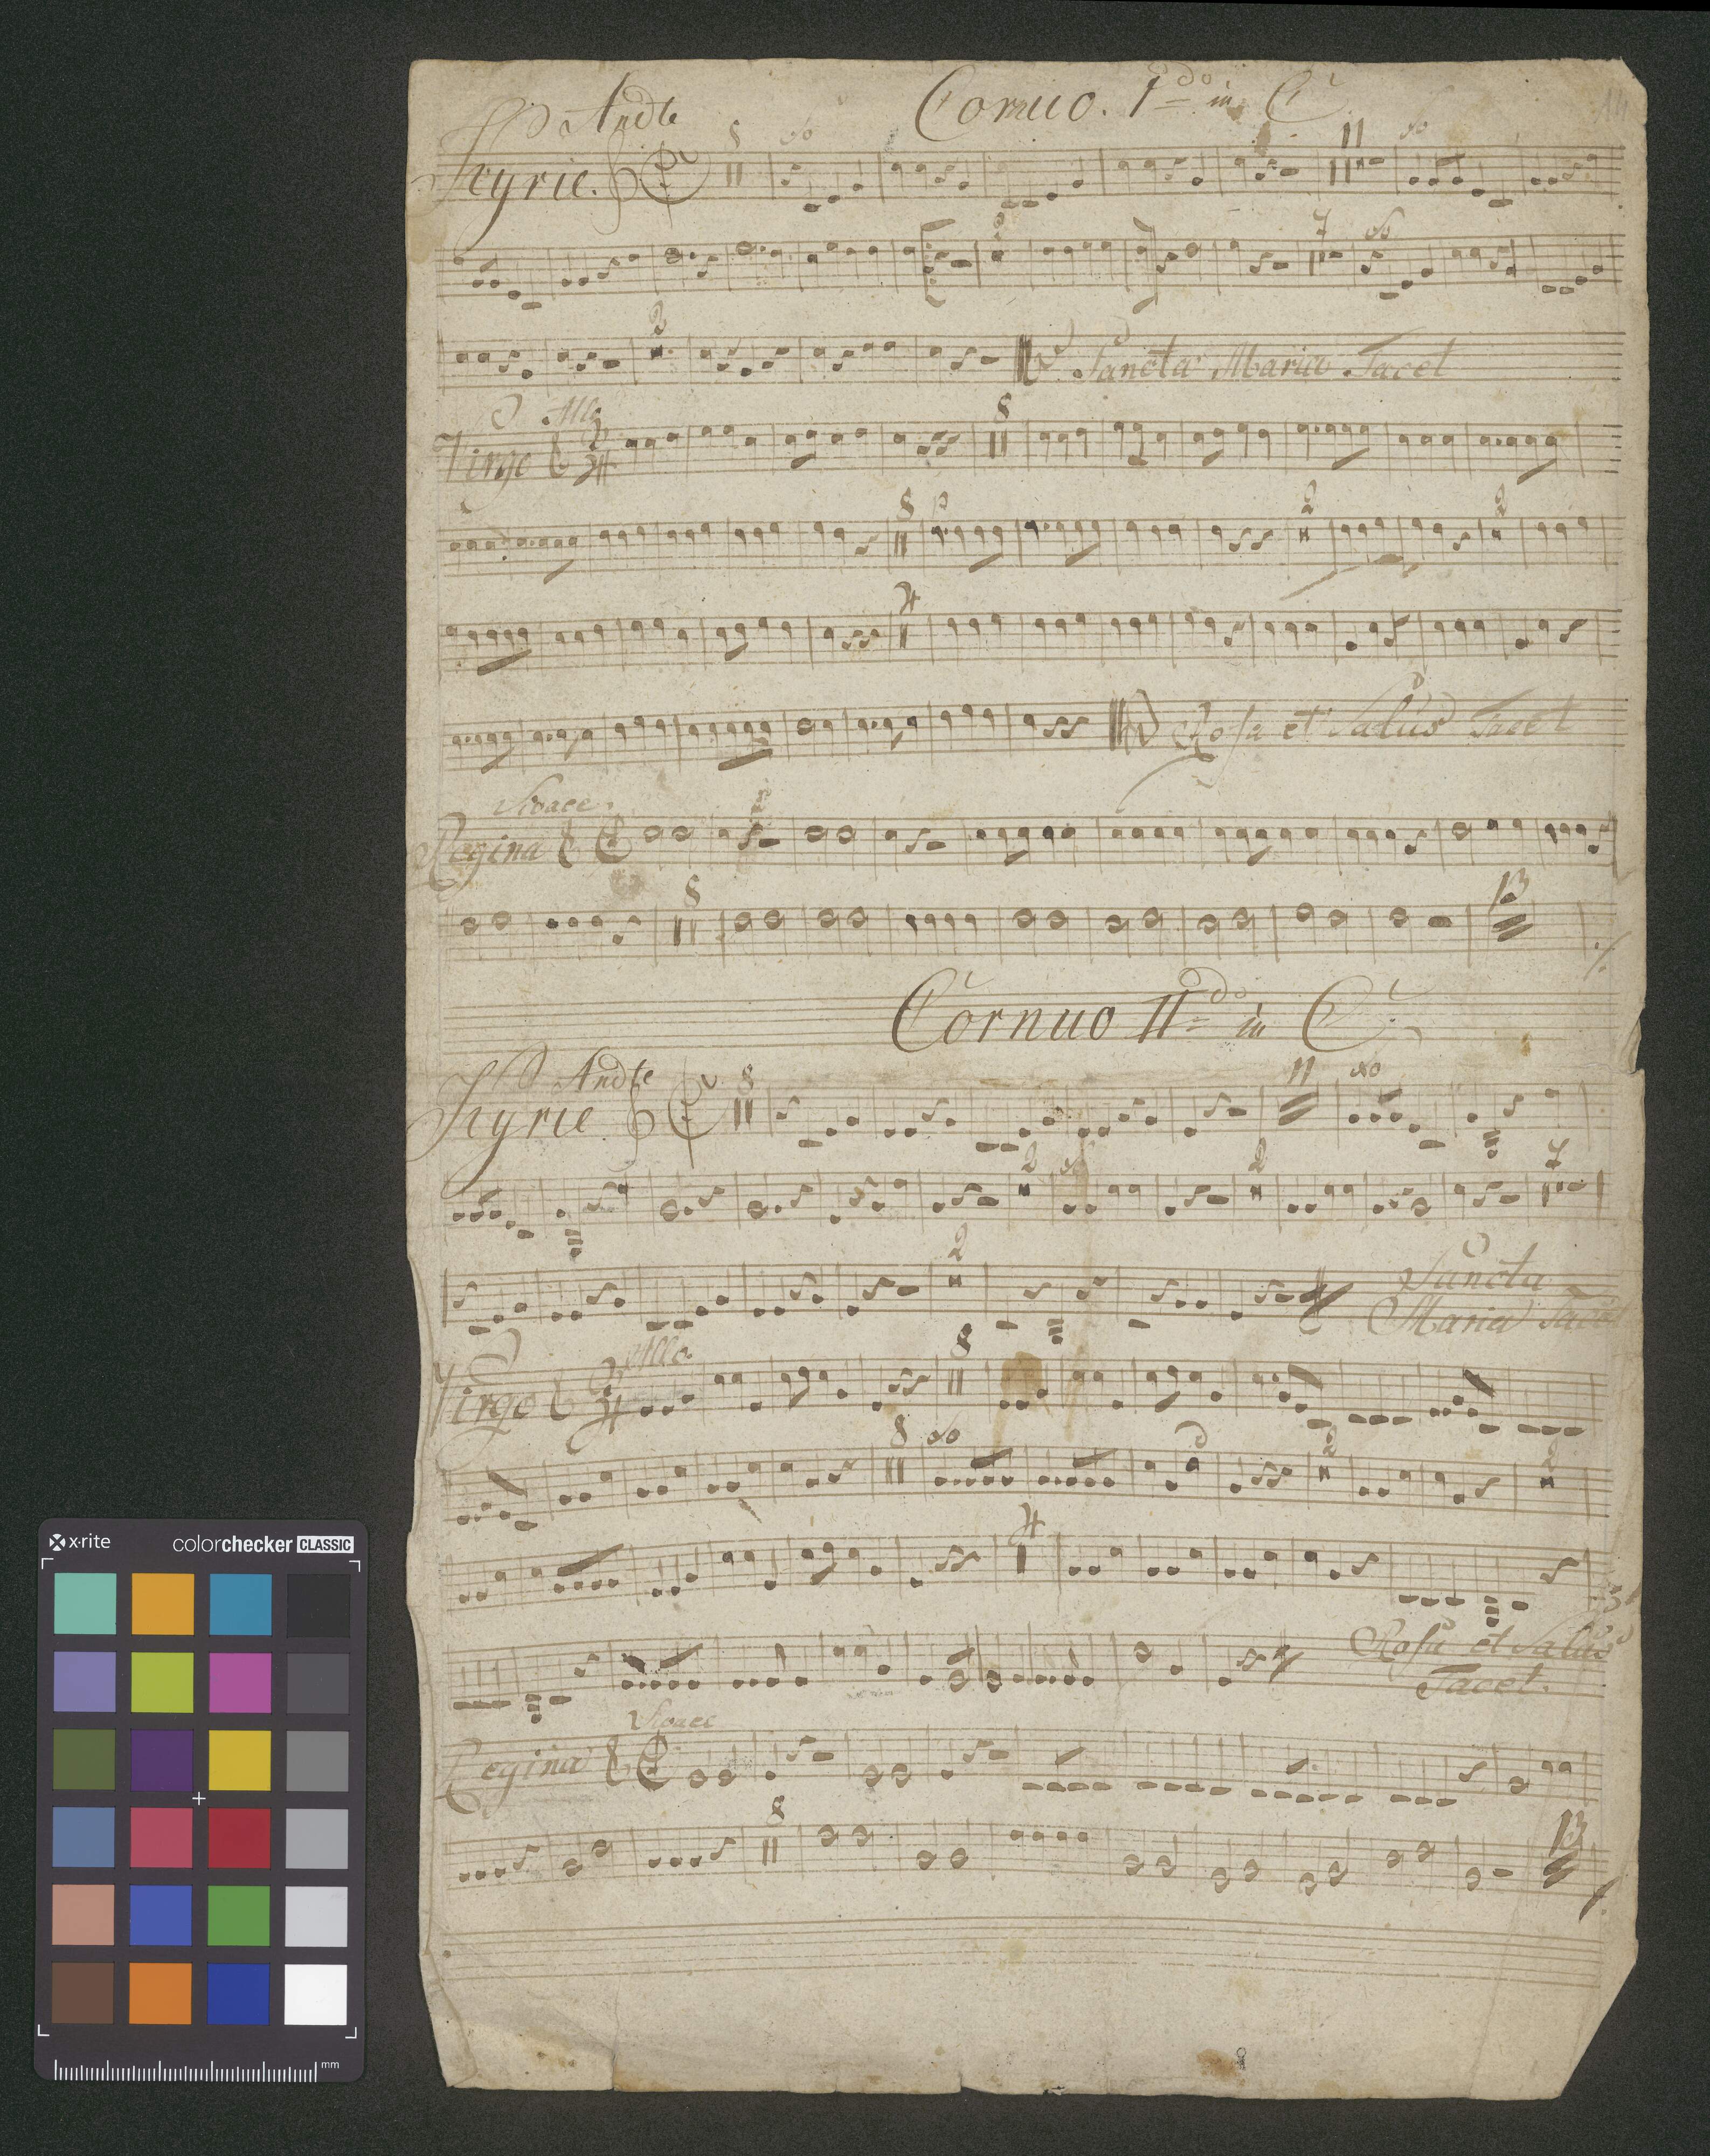 Cornuo. Ido in C
Andte
8 so 11 so
Kyrie.
2 7 so
2
Sancta Maria Tacet
Allo
8
Virgo 3/4
8 p 2 2
4
Rosa et Salus Tacet
Vivace.
Regina
8 13
Cornuo IIdo in C.
Andte
8 11 so
Kyrie
2 so 2 7
2
Sancta
Maria Tacet
Allo
8
Virgo 3/4
8 so 2 2
4
Rosa et Salus
Tacet.
Vivace
Regina
8 13
x-rite colorchecker CLASSIC
mm